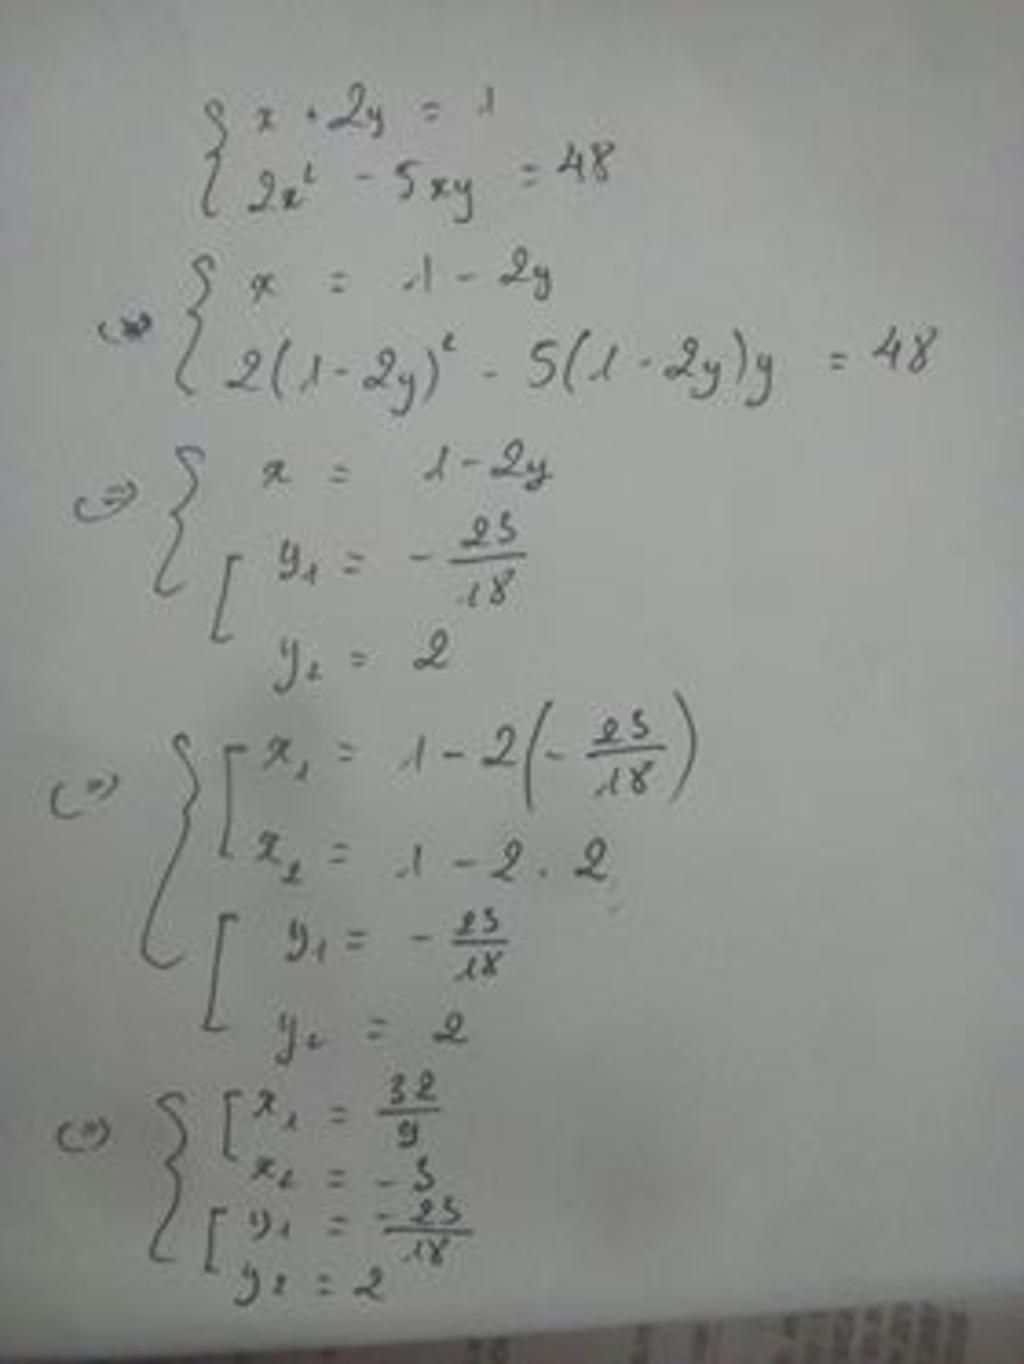 { x + 2y = 1
2x² - 5xy = 48
<=> { x = 1 - 2y
2(1 - 2y)² - 5(1 - 2y)y = 48
<=> { x = 1 - 2y
[ y₁ = - 23/18
y₂ = 2
<=> { [ x₁ = 1 - 2(- 23/18)
x₂ = 1 - 2 . 2
[ y₁ = - 23/18
y₂ = 2
<=> { [ x₁ = 32/9
x₂ = - 3
[ y₁ = - 23/18
y₂ = 2